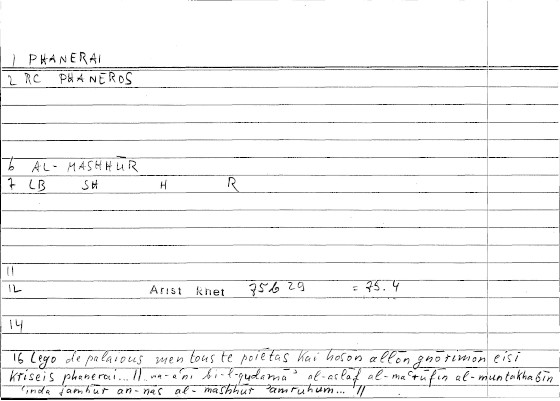 1 PHANERAI
2 RC PHANEROS
6 AL-MASHHŪR
7 LB SH H R
11
12 Arist rhet 75b 29 = 75.4
14
16 Lego de palaious men tous te poiētas kai hoson allōn gnōrimōn eisi
kriseis phanerai... || wa-aʿnī bi-l-qudamāʾ al-aslāf al-maʿrūfīn al-muntakhabīn
ʿinda jamhūr an-nās al-mashhūr amruhum... ||